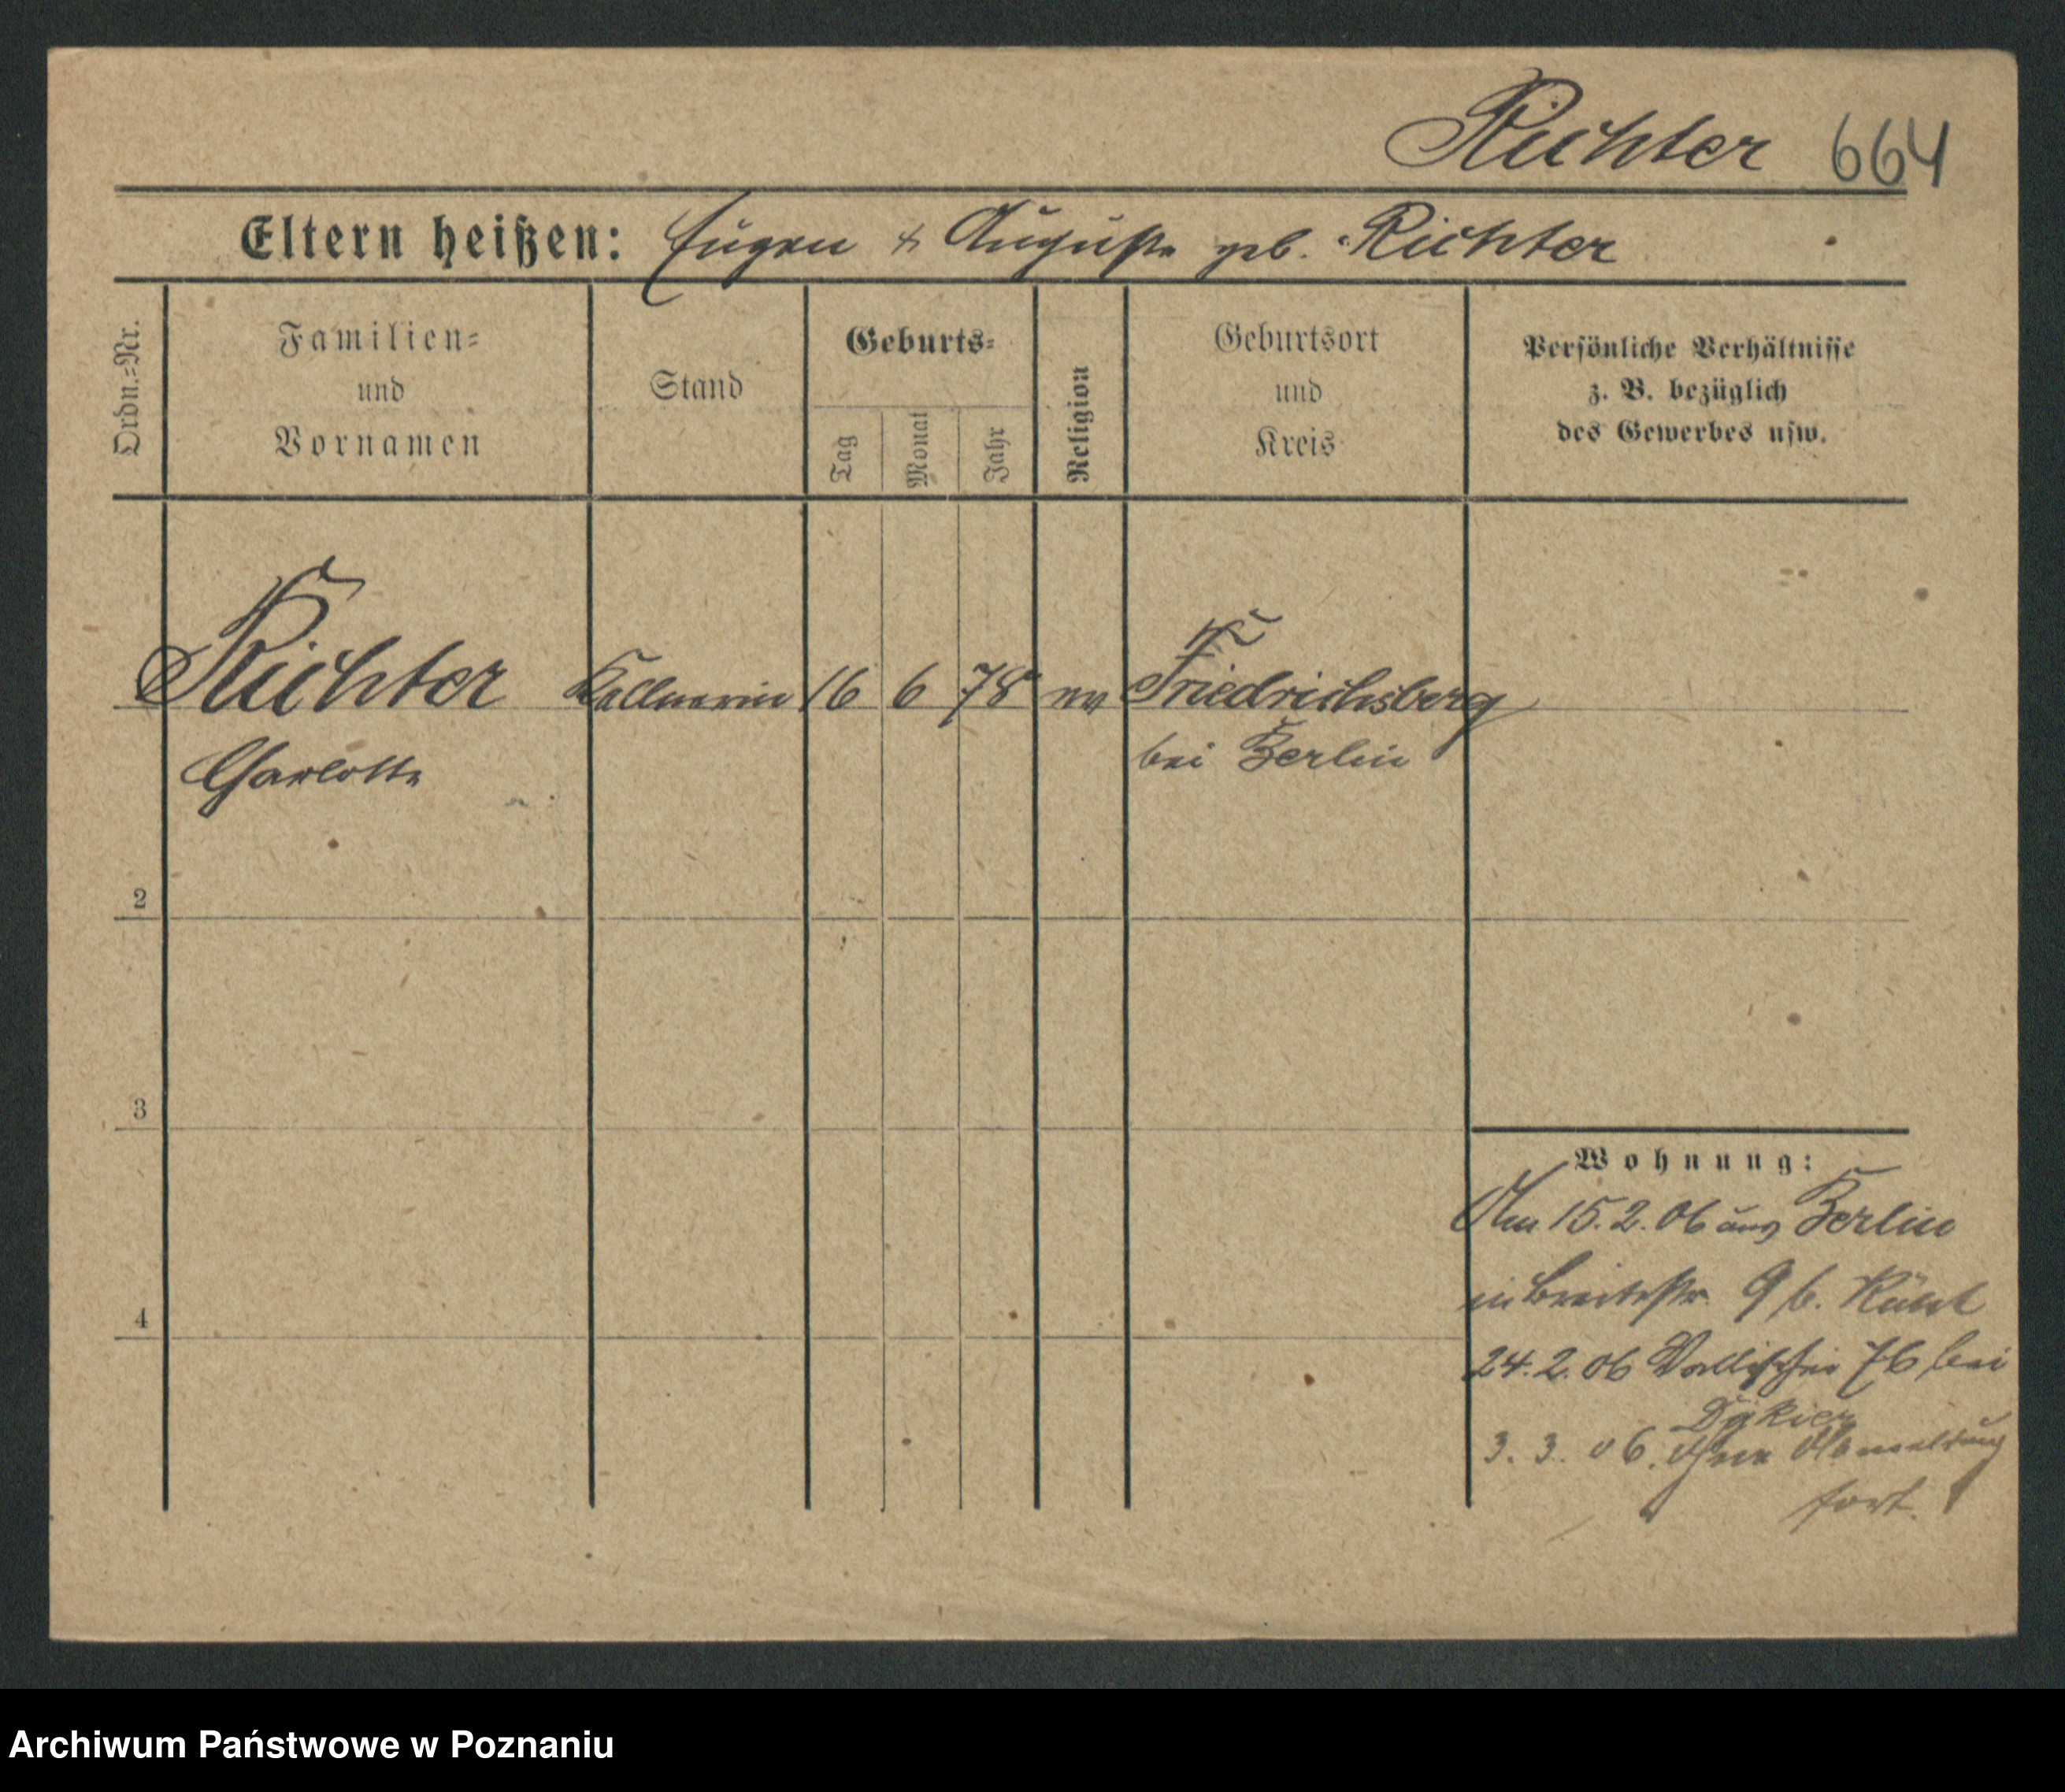 Richter 664
Eltern heißen: Eugen & Auguste geb. Richter
Ordn.=Nr.
Familien=
und
Vornamen
Stand
Geburts=
Tag
Monat
Jahr
Religion
Geburtsort
und
Kreis
Persönliche Verhältnisse
z. B. bezüglich
des Gewerbes usw.
Richter Kellnerin 16 6 78 ev Friedrichsberg
Charlotte bei Berlin
2
3
4
Wohnung:
Am 15.2.06 aus Berlin
in Breitestr. 9 b.
24.2.06 Wallischei 76 bei
3. 3. 06. Ohne Abmeldung
fort.
Archiwum Państwowe w Poznaniu